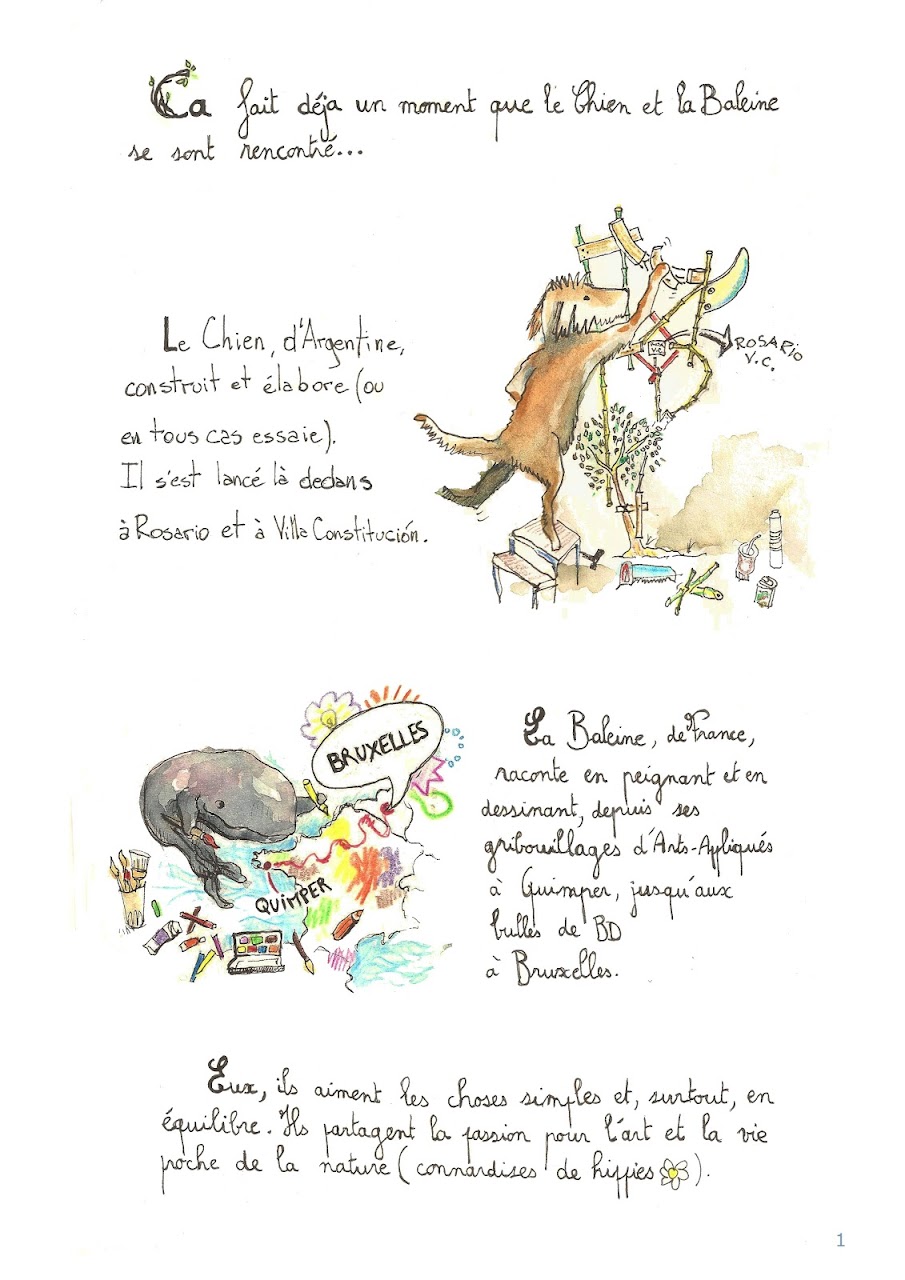 Ca fait déja un moment que le Chien et la Baleine
se sont rencontré...
Le Chien, d'Argentine,
construit et élabore (ou
en tous cas essaie).
Il s'est lancé là dedans
à Rosario et à Villa Constitución.
ROSARIO
V.C.
V.C.
BRUXELLES
QUIMPER
La Baleine, de France,
raconte en peignant et en
dessinant, depuis ses
gribouillages d'Arts-Appliqués
à Quimper, jusqu'aux
bulles de BD
à Bruxelles.
Eux, ils aiment les choses simples et, surtout, en
équilibre. Ils partagent la passion pour l'art et la vie
poche de la nature (connardises de hippies).
1